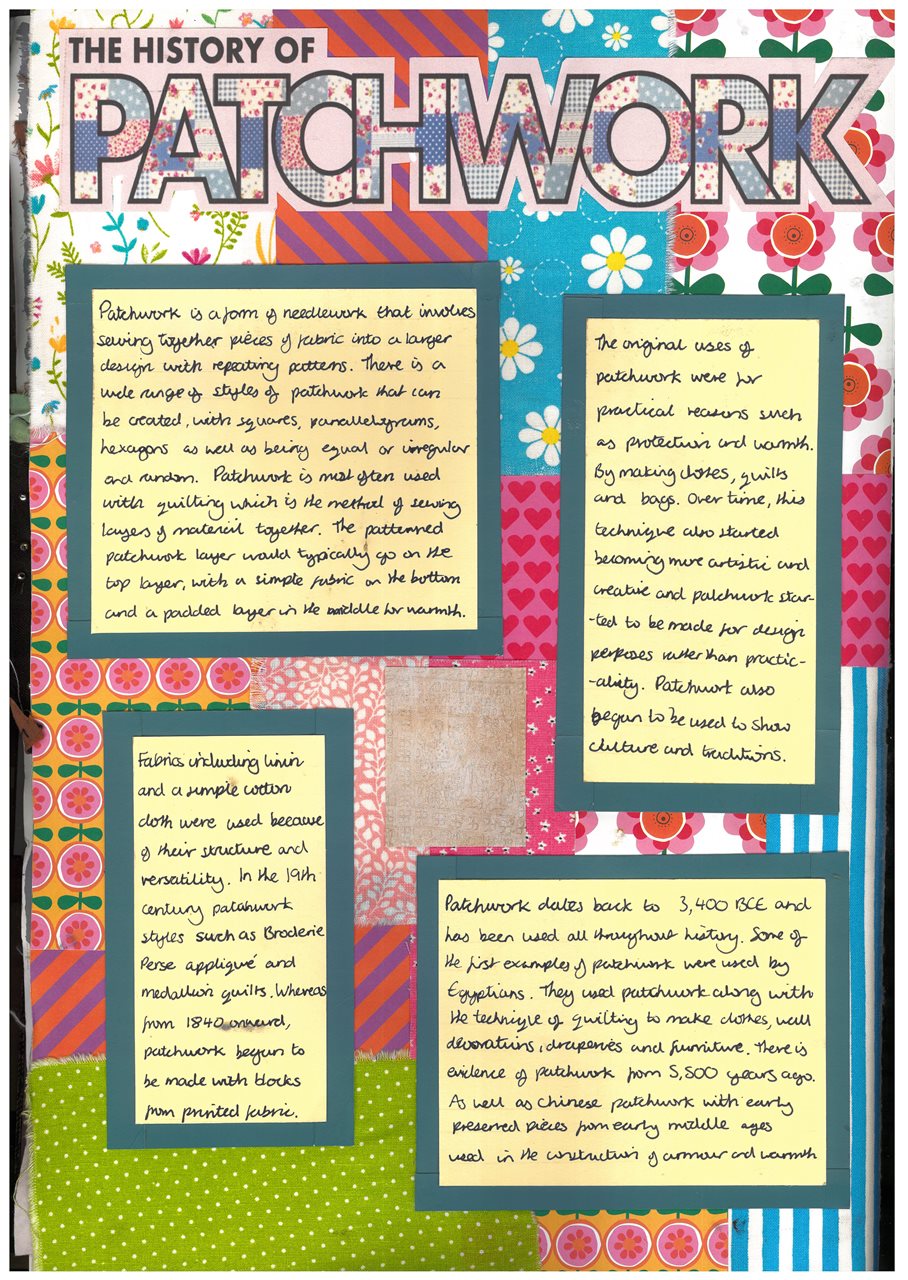 THE HISTORY OF
PATCHWORK
Patchwork is a form of needlework that involves
sewing together pieces of fabric into a larger
design with repeating patterns. There is a
wide range of styles of patchwork that can
be created, with squares, parallelograms,
hexagons as well as being equal or irregular
and random. Patchwork is most often used
with quilting which is the method of sewing
layers of material together. The patterned
patchwork layer would typically go on the
top layer, with a simple fabric on the bottom
and a padded layer in the middle for warmth.
The original uses of
patchwork were for
practical reasons such
as protection and warmth.
By making clothes, quilts
and bags. Over time, this
technique also started
becoming more artistic and
creative and patchwork star-
-ted to be made for design
purposes rather than practic-
-ality. Patchwork also
began to be used to show
culture and traditions.
Fabrics including linin
and a simple cotton
cloth were used because
of their structure and
versatility. In the 19th
century patchwork
styles such as Broderie
Perse appliqué and
medallion quilts. Whereas
from 1840 onward,
patchwork begun to
be made with blocks
from printed fabric.
Patchwork dates back to 3,400 BCE and
has been used all throughout history. Some of
the first examples of patchwork were used by
Egyptians. They used patchwork along with
the techniqe of quilting to make clothes, wall
decorations, draperies and furniture. There is
evidence of patchwork from 5,500 years ago.
As well as Chinese patchwork with early
preserved pieces from early middle ages
used in the construction of armour and warmth